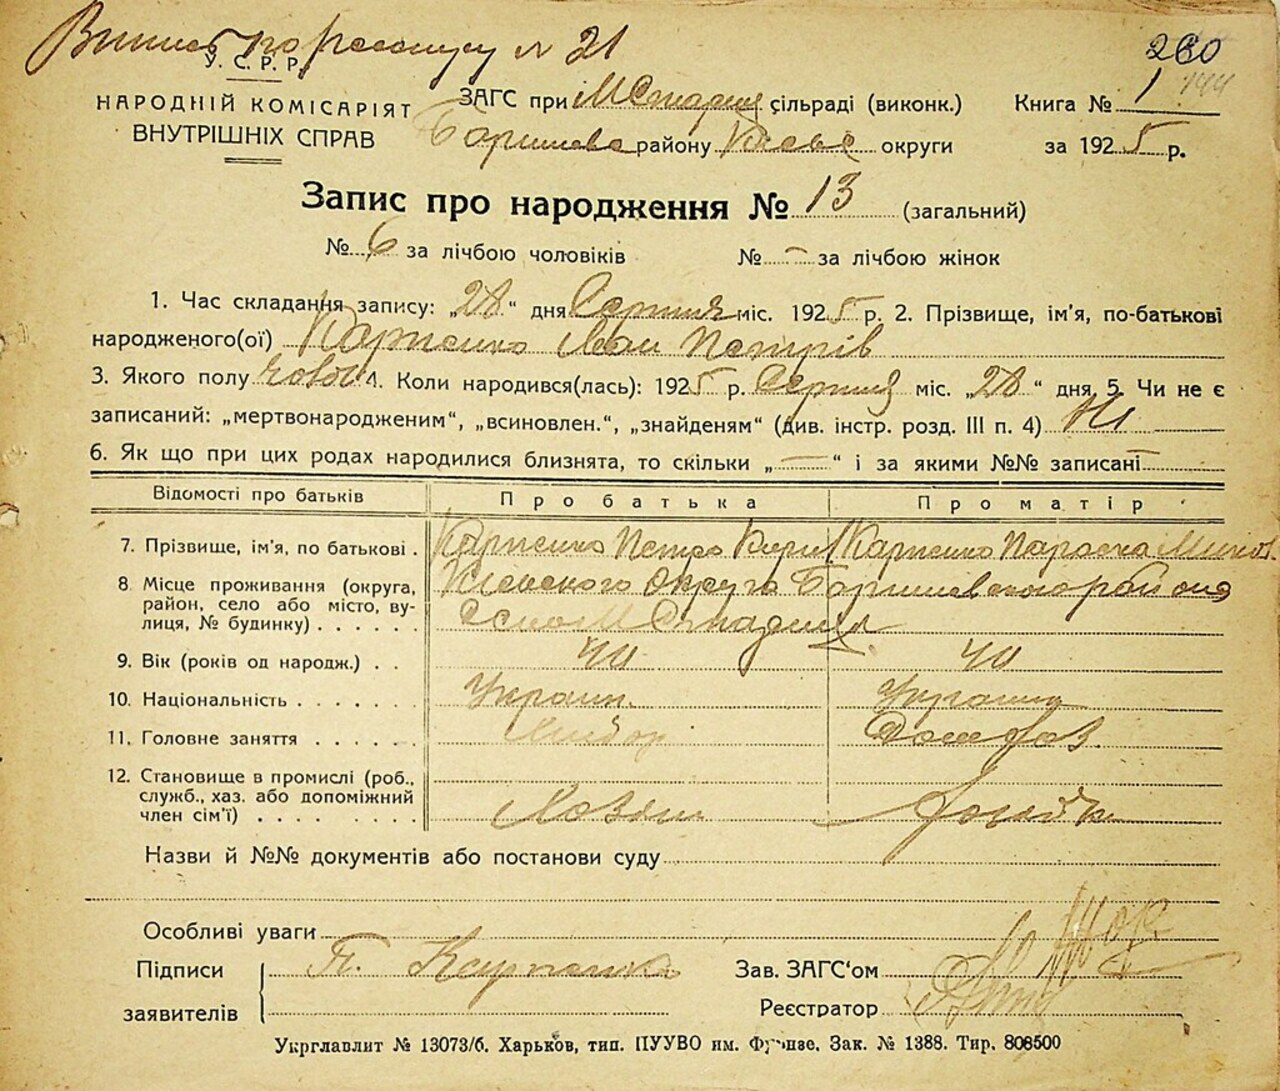 № 21
У. С. Р. Р.
260
НАРОДНІЙ КОМІСАРІЯТ
ВНУТРІШНІХ СПРАВ
ЗАГС при М Стадиця сільраді (виконк.)
Книга № 1 144
Баришевс району Київс округи
за 1925 р.
Запис про народження № 13 (загальний)
№ 6 за лічбою чоловіків № – за лічбою жінок
1. Час складання запису: „28“ дня Серпня міс. 1925 р. 2. Прізвище, ім'я, по-батькові
народженого(ої) Карпенко Иван Петрів
3. Якого полу чолов 4. Коли народився(лась): 1925 р. Серпня міс. „28“ дня 5. Чи не є
записаний: „мертвонародженим“, „всиновлен.“, „знайденям“ (див. інстр. розд. III п. 4) Ні
6. Як що при цих родах народилися близнята, то скільки „—“ і за якими №№ записані —
Відомості про батьків Про батька Про матір
7. Прізвище, ім'я, по батькові . Карпенко Петро Кирил Карпенко Параска
8 Місце проживання (округа, район, село або місто, вулиця, № будинку) . . . . . . Киевского Округа Баришевского района
Село М Стадиця
9. Вік (років од народж.) . . 40 40
10. Національність . . . . . . . Украин. Украинк
11. Головне заняття . . . . . . Хлибор Домохоз.
12. Становище в промислі (роб., служб., хаз. або допоміжний член сім'ї) . . . . . . . . Хозяин
Назви й №№ документів або постанови суду
Особливі уваги
Підписи
заявителів
П. Карпенко
Зав. ЗАГС'ом
Реєстратор
Укрглавлит № 13073/б. Харьков, тип. ПУУВО им. Фрунзе. Зак. № 1388. Тир. 808500